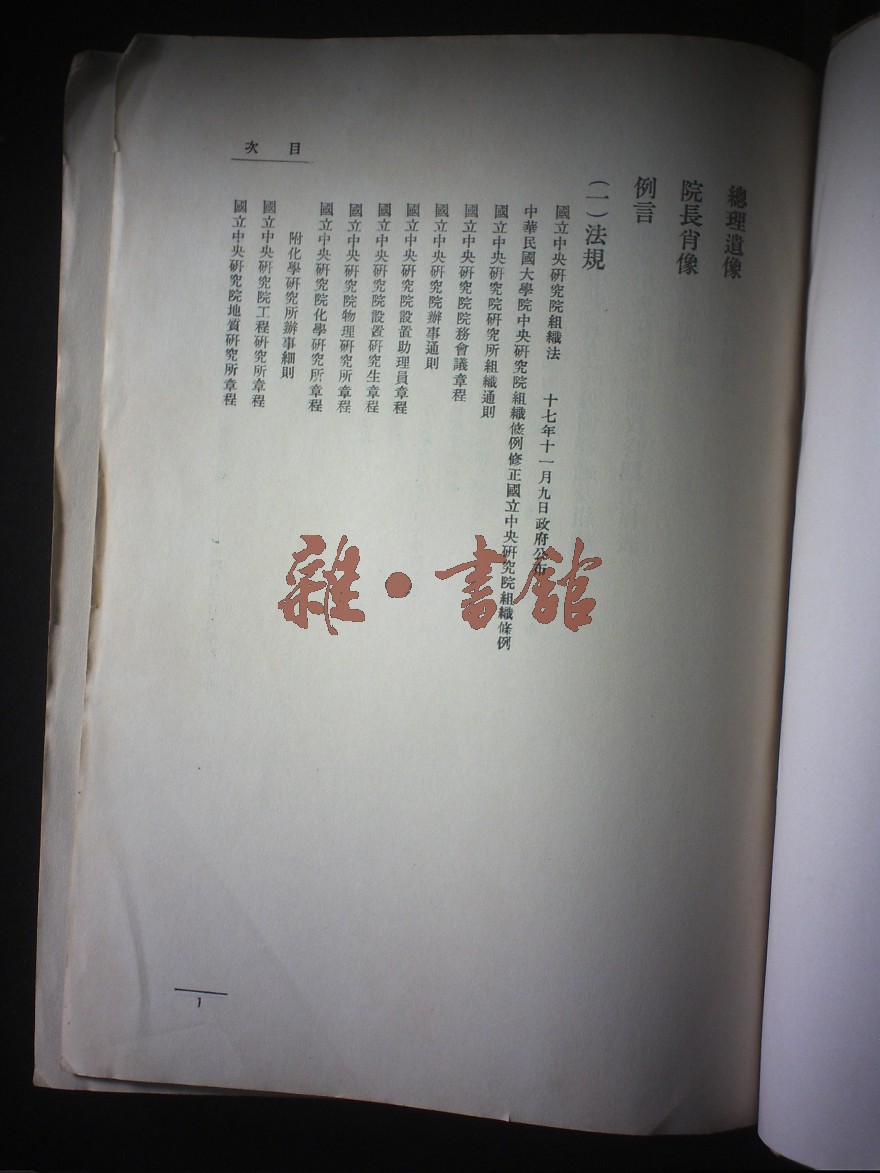 總理遺像
院長肖像
例言
（一）法規
國立中央研究院組織法　十七年十一月九日政府公布
中華民國大學院中央研究院組織條例修正國立中央研究院組織條例
國立中央研究院研究所組織通則
國立中央研究院院務會議章程
國立中央研究院辦事通則
國立中央研究院設置助理員章程
國立中央研究院設置研究生章程
國立中央研究院物理研究所章程
國立中央研究院化學研究所章程
附化學研究所辦事細則
國立中央研究院工程研究所章程
國立中央研究院地質研究所章程
目次
1
雜・書館